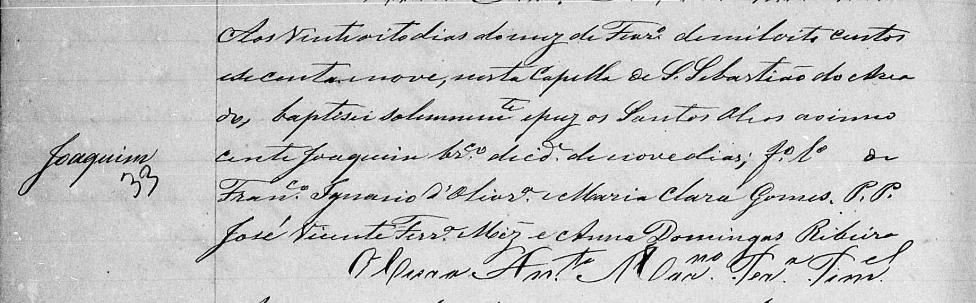 Aos Vinteoito dias do mez de Fevrº. de mil oito centos
e secenta e nove, nesta Capella de S. Sebastião do Area
do, baptisei solemnemte e puz os Santos Oleos ao inno
Joaquim
33
cente Joaquim brcº. de edº. de nove dias; fº. lº. de
Francº. Ignacio d'Olivrª. e Maria Clara Gomes. P.P.
José Vicente Ferrª. e Anna Domingas Ribeiro
O Cura Antº